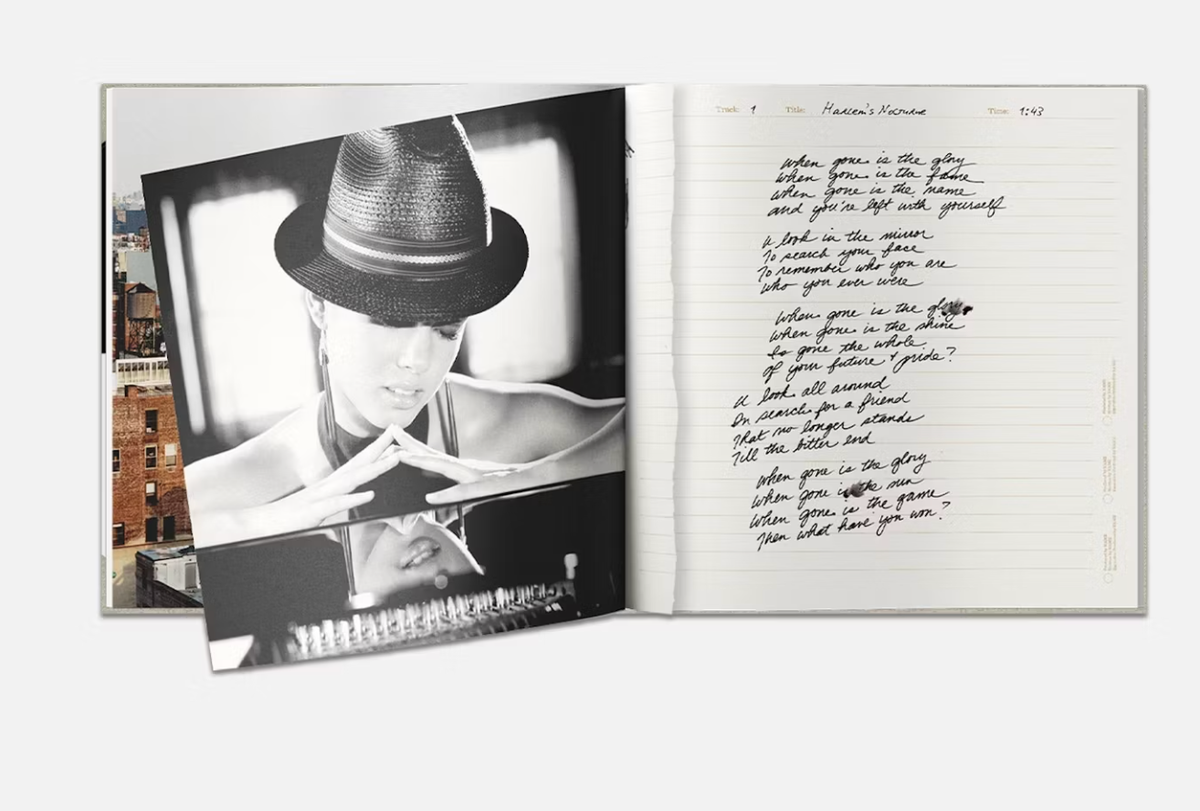 Track: 1 Title: Harlem's Nocturne Time: 1:43
When gone is the glory
When gone is the fame
When gone is the name
and you're left with yourself
U look in the mirror
To search your face
To remember who you are
Who you ever were
When gone is the
When gone is the shine
Is gone the whole
of your future + pride?
U look all around
In search for a friend
That no longer stands
Till the bitter end
When gone is the glory
When gone is the sun
When gone is the game
Then what have you won?